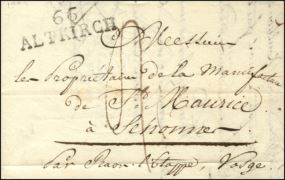 66
ALTKIRCH
Messieurs
les Propriétaires de la Manufacture
de St Maurice
à Senonne
Par Raon-l'Etappe, Vosge.